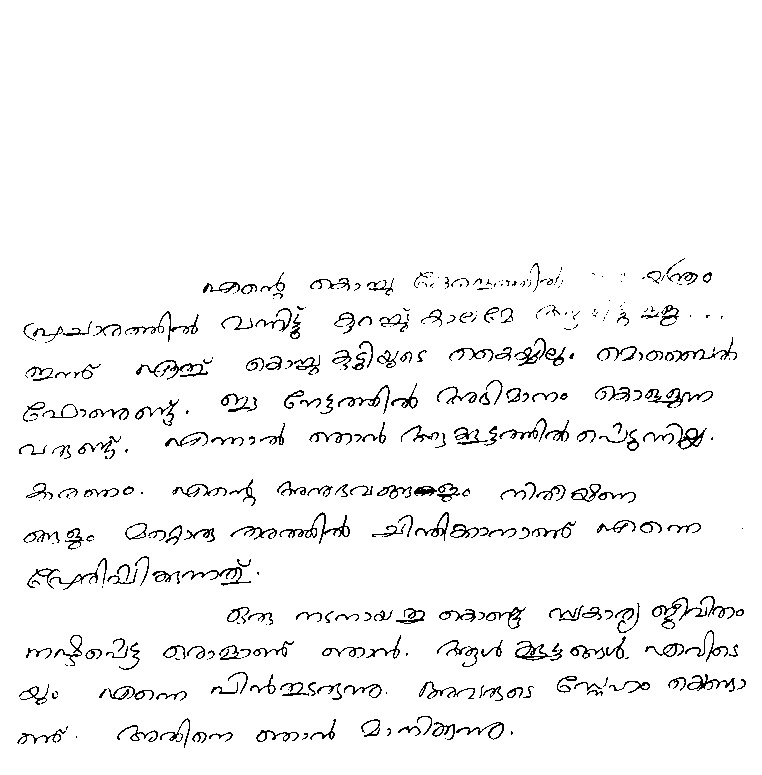 എന്റെ കൊച്ചു കേരളത്തിൽ യന്ത്രം
പ്രചാരത്തിൽ വന്നിട്ട് കുറച്ച് കാലമേ ആയിട്ടുള്ളൂ...
ഇന്ന് ഏത് കൊച്ചു കുട്ടിയുടെ കൈയ്യിലും മൊബൈൽ
ഫോണുണ്ട്. ഈ നേട്ടത്തിൽ അഭിമാനം കൊള്ളുന്ന
വരുണ്ട്. എന്നാൽ ഞാൻ ആ കൂട്ടത്തിൽപെടുന്നില്ല.
കാരണം. എന്റെ അനുഭവങ്ങളും നിരീക്ഷണ
ങ്ങളും മറ്റൊരു തരത്തിൽ ചിന്തിക്കാനാണ് എന്നെ
പ്രേരിപ്പിക്കുന്നത്.
ഒരു നടനായതു കൊണ്ടു സ്വകാര്യ ജീവിതം
നഷ്ടപ്പെട്ട ഒരാളാണ് ഞാൻ. ആൾ കൂട്ടങ്ങൾ എവിടെ
യും എന്നെ പിൻതുടരുന്നു. അവരുടെ സ്നേഹം കൊണ്ടാ
ണ്. അതിനെ ഞാൻ മാനിക്കുന്നു.